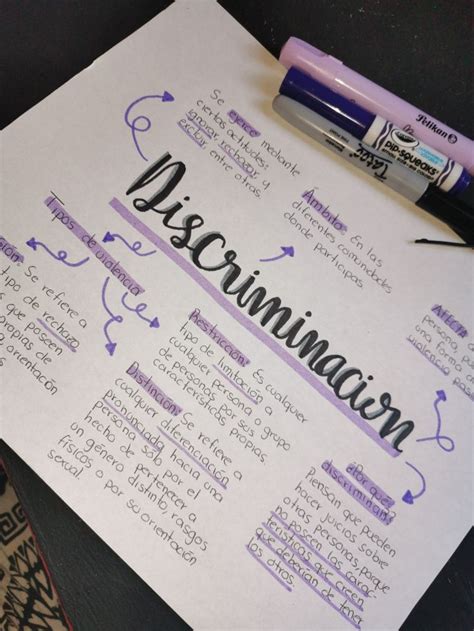 Se ejerce mediante
ciertas actitudes:
ignorar, rechazar y
excluir, entre otras.
Discriminacion
Ámbito: En las
diferentes comunidades
donde participas.
Tipos de violencia
Se refiere a
tipo de rechazo
que poseen
propias de
orientación
Restricción: Es cualquier
tipo de limitación a
cualquier persona o grupo
de personas por sus
características propias.
Distinción: Se refiere a
cualquier diferenciación
pronunciada hacia una
persona sólo por el
hecho de pertenecer a
un género distinto, rasgos
físicos o por su orientación
sexual.
persona
una forma
violencia
¿Por qué
discriminan?
Piensan que pueden
hacer juicios sobre
otras personas, porque
no poseen las carac-
terísticas que creen
que deberían de tener
los otros.
Pelikan
Crayola
PIP-SQUEAKS